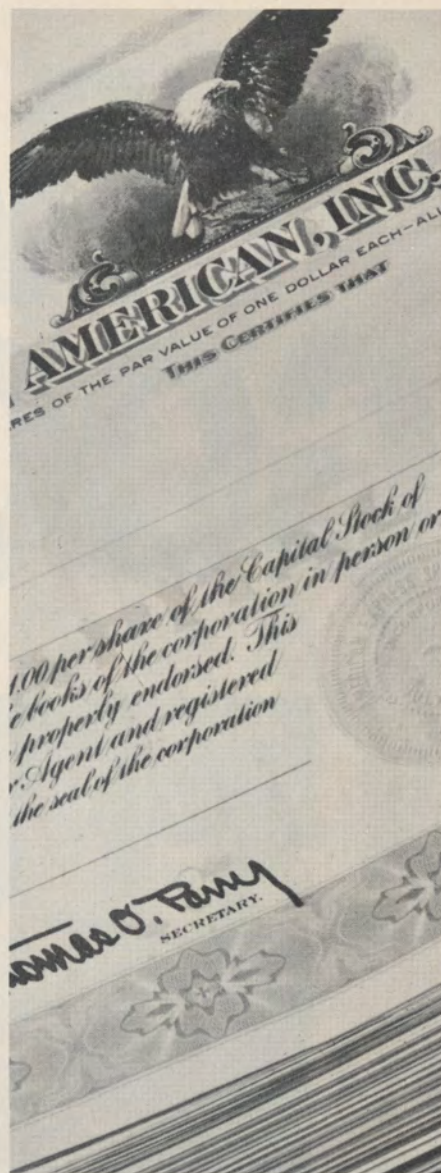 AMERICAN, INC.
RES OF THE PAR VALUE OF ONE DOLLAR EACH—ALL
THIS CERTIFIES THAT
1.00 per share of the Capital Stock of
e books of the corporation in person or
properly endorsed. This
r Agent and registered
the seal of the corporation
Thomas O. Parry
SECRETARY.